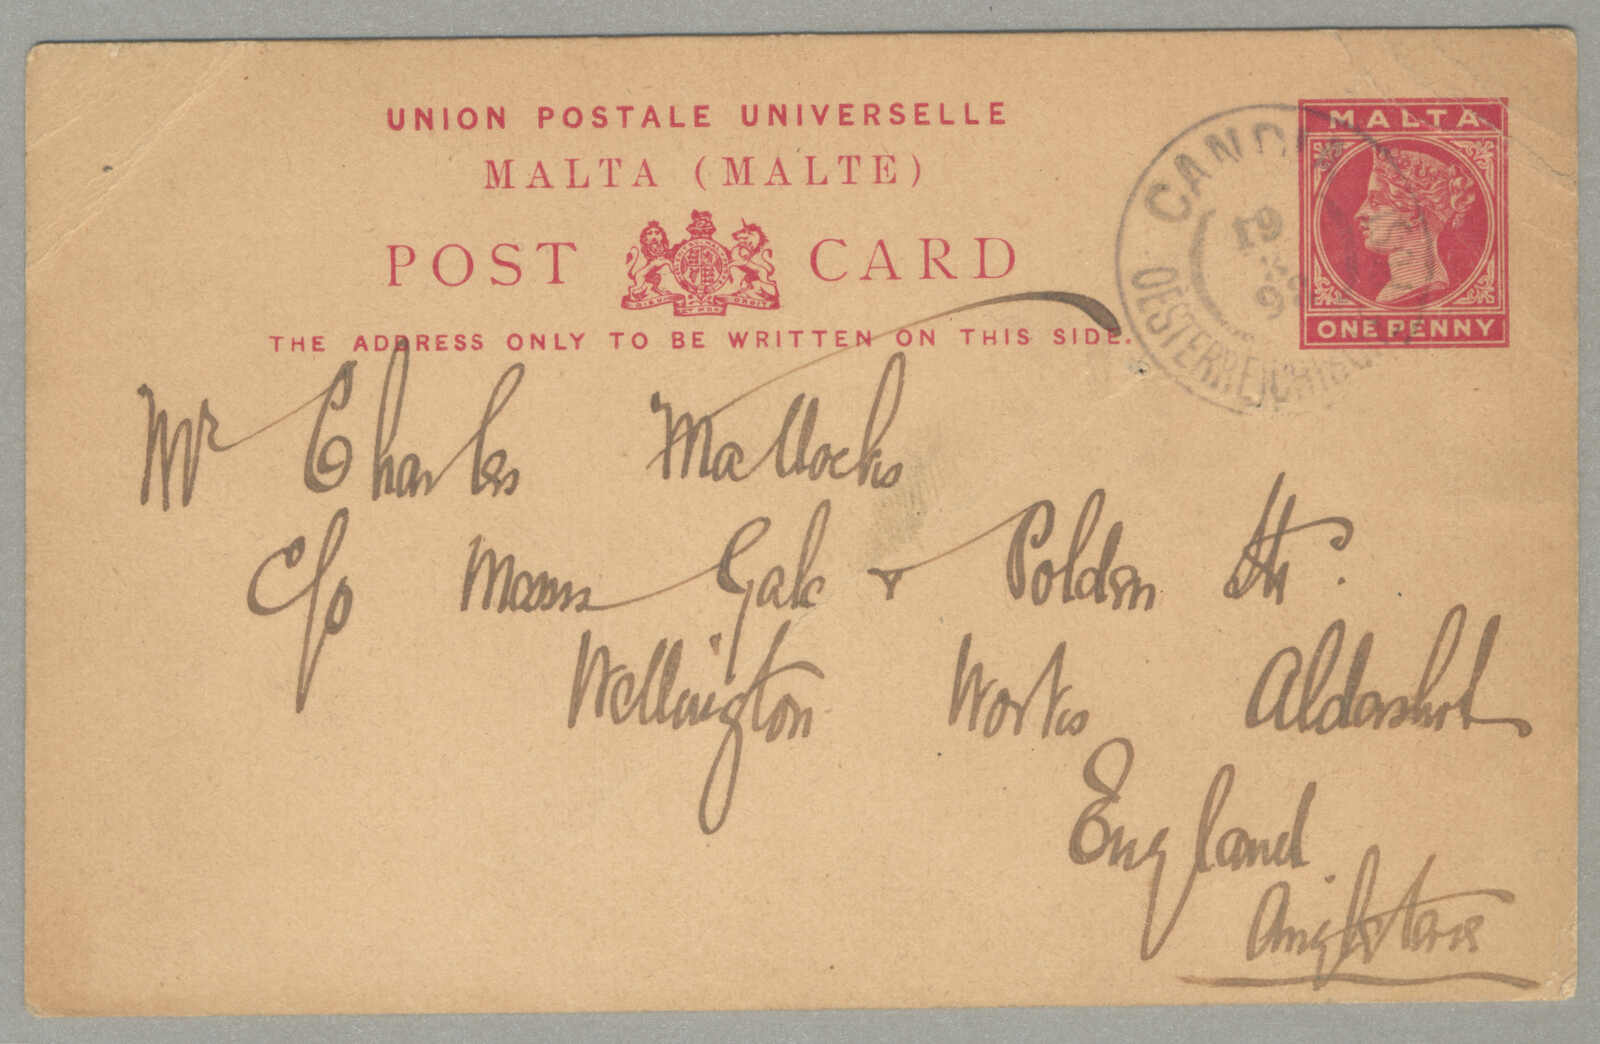 UNION POSTALE UNIVERSELLE
MALTA (MALTE)
POST CARD
THE ADDRESS ONLY TO BE WRITTEN ON THIS SIDE.
MALTA
ONE PENNY
CANDIA
19
98
OESTERREICHISCHE
Mr Charles Mallocks
c/o Messrs Gale & Polden Ltd.
Wellington Works Aldershot
England
Angleterre